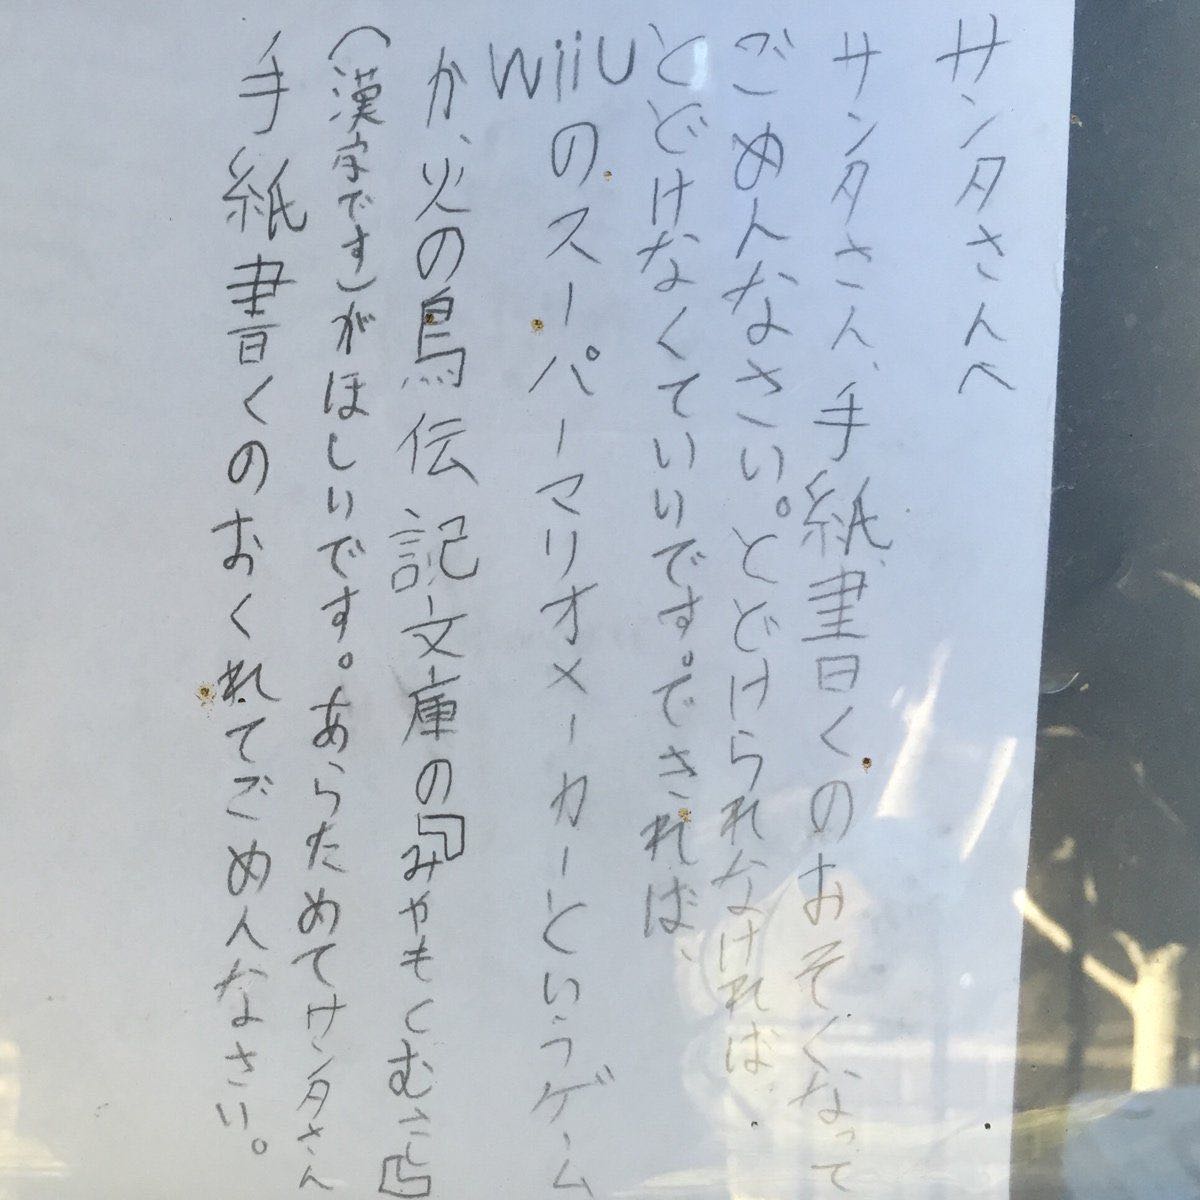 サンタさんへ
サンタさん、手紙書くのおそくなって
ごめんなさい。とどけられなければ
とどけなくていいです。できれば、
WiiUのスーパーマリオメーカーというゲーム
か、火の鳥伝記文庫の『みやもとむさし』
(漢字です)がほしいです。あらためてサンタさん
手紙書くのおくれてごめんなさい。